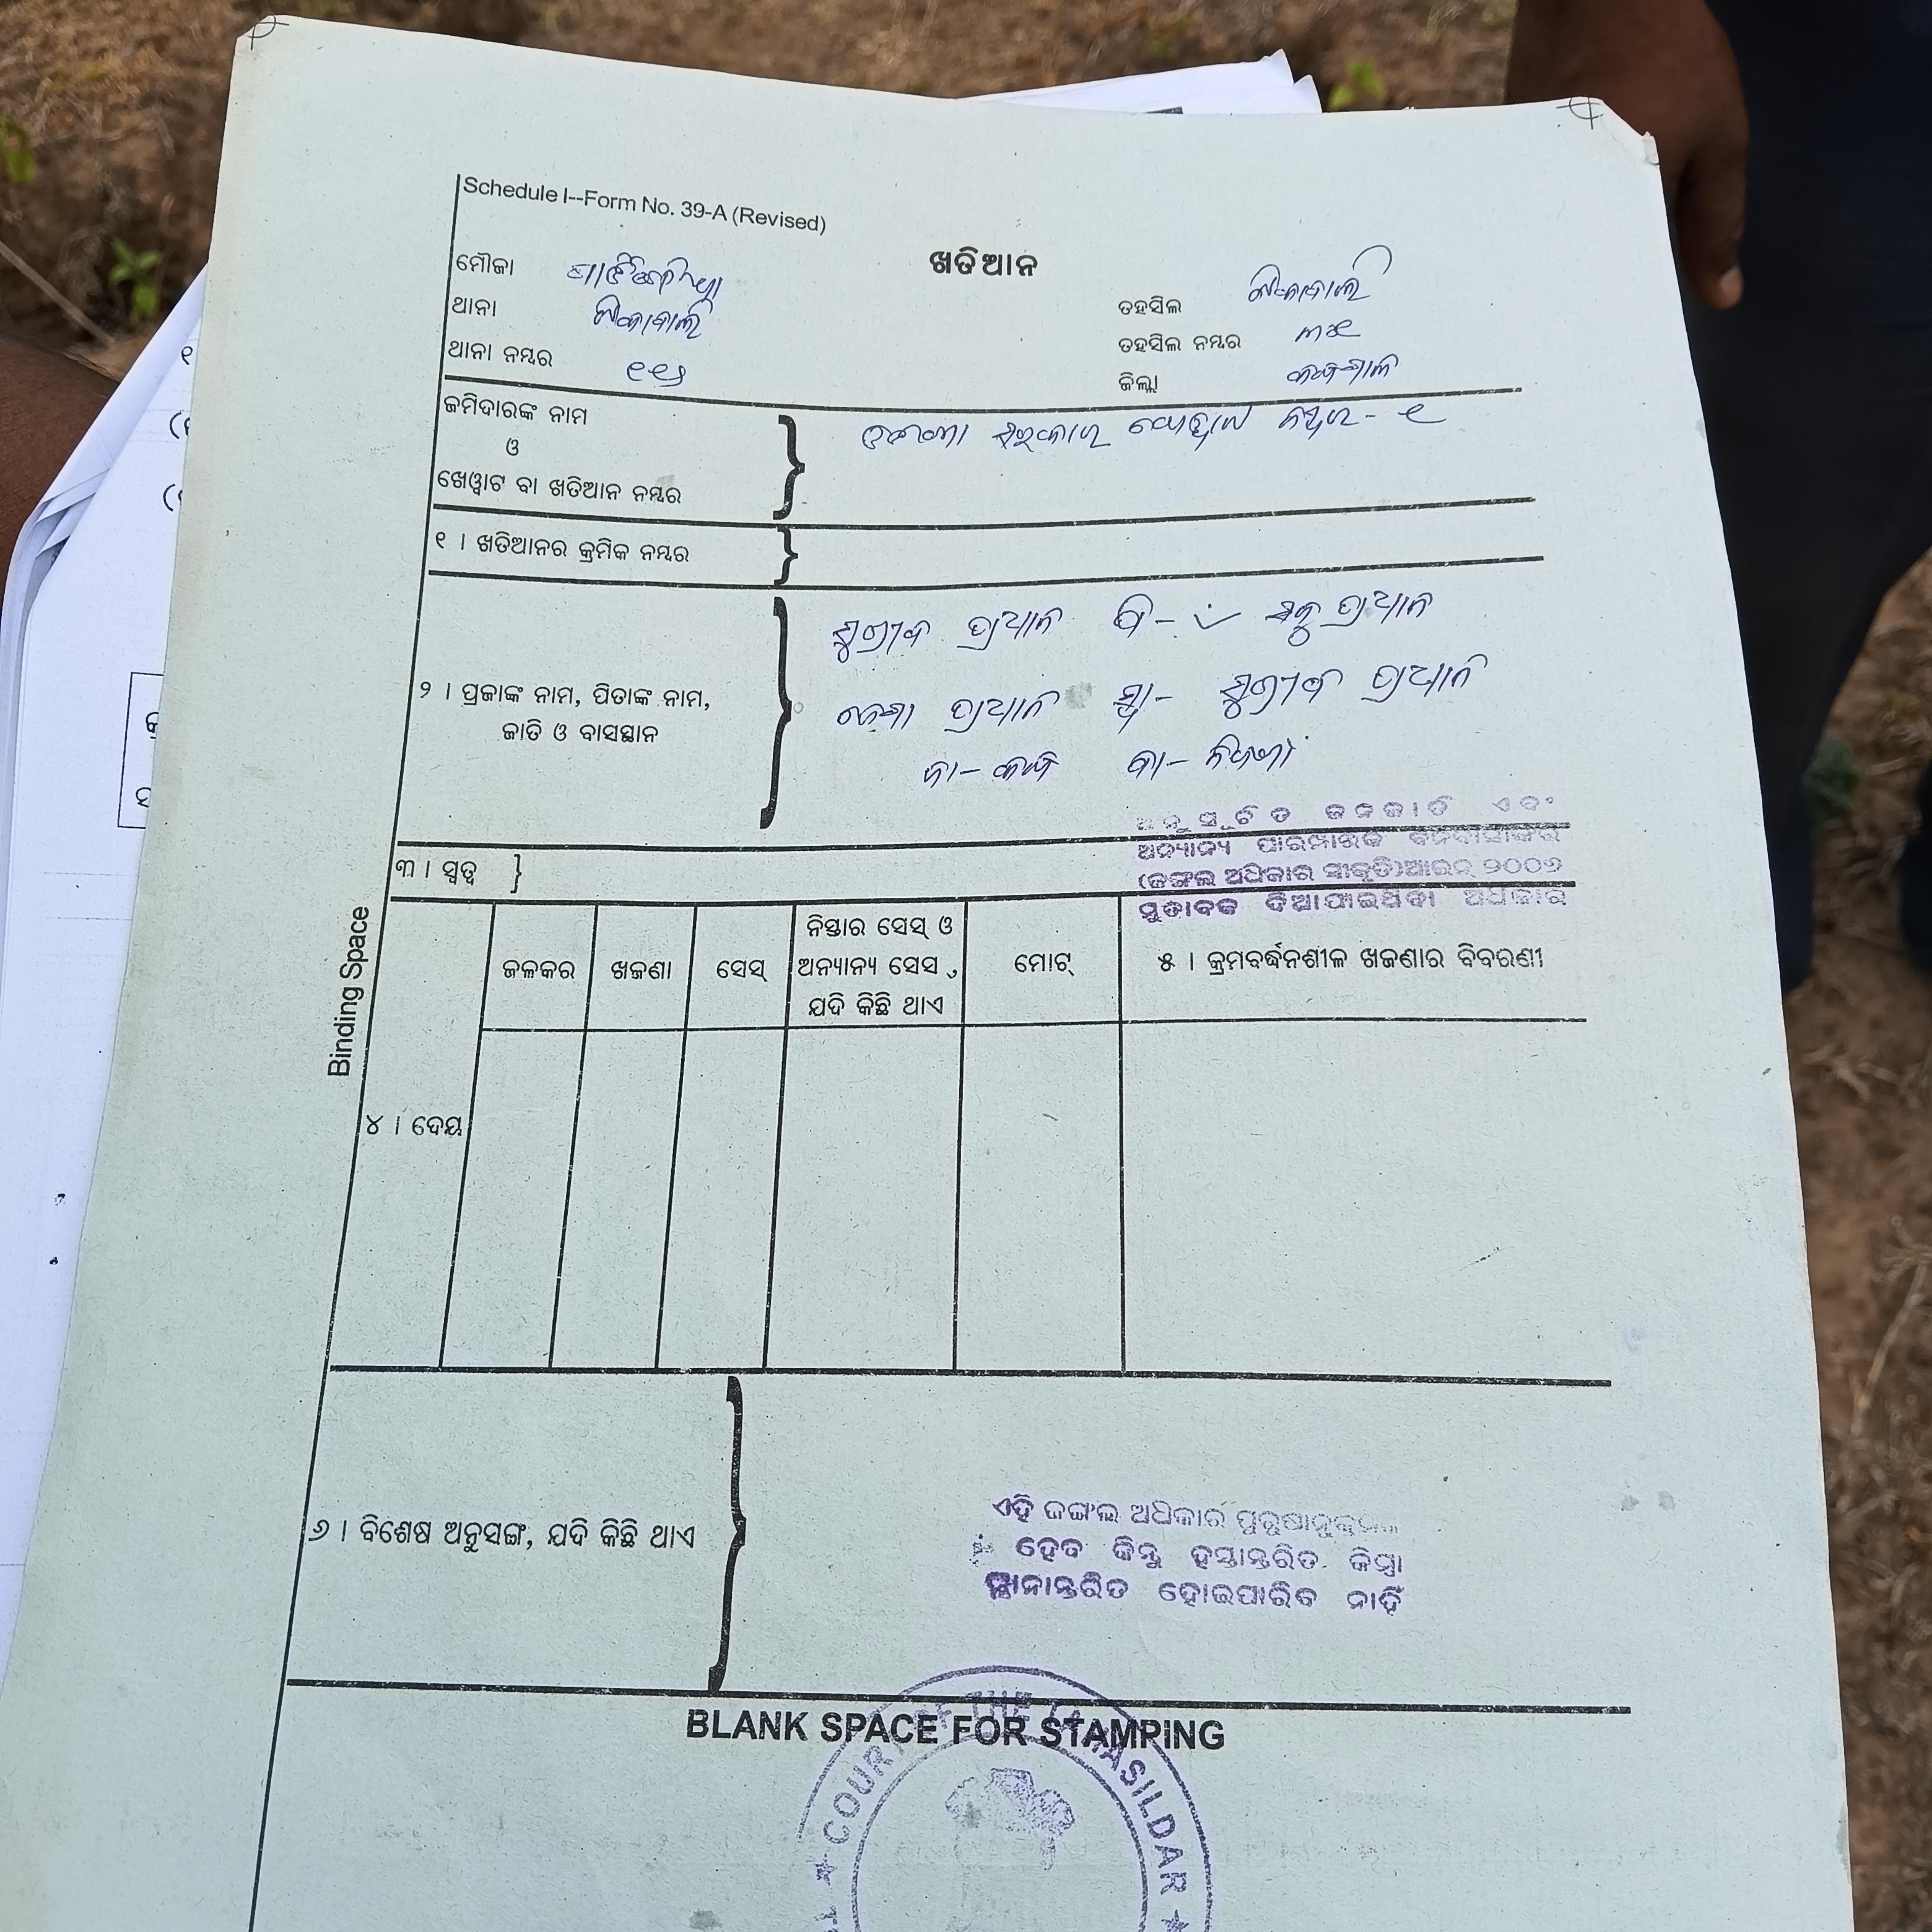 Schedule I--Form No. 39-A (Revised)
ଖତିଆନ
ମୌଜା
ଥାନା ଟିକାବାଲି
ଥାନା ନମ୍ବର ୧୧୬
ତହସିଲ ଟିକାବାଲି
ତହସିଲ ନମ୍ବର
ଜିଲ୍ଲା କନ୍ଧମାଳ
ଜମିଦାରଙ୍କ ନାମ
ଓ
ଖେୱାଟ ବା ଖତିଆନ ନମ୍ବର
ଓଡିଶା ସରକାର ଖେୱାଟ ନମ୍ବର - ୧
୧ । ଖତିଆନର କ୍ରମିକ ନମ୍ବର
୨ । ପ୍ରଜାଙ୍କ ନାମ, ପିତାଙ୍କ ନାମ,
ଜାତି ଓ ବାସସ୍ଥାନ
ସୁଗ୍ରୀବ ପ୍ରଧାନ ପି - ପ୍ରଧାନ
ପ୍ରଧାନ ସ୍ୱା - ସୁଗ୍ରୀବ ପ୍ରଧାନ
ଜା - କନ୍ଧ ବା - ନିଜଗାଁ
୩ । ସ୍ୱତ୍ୱ
ଅନୁସୂଚିତ ଜନଜାତି ଏବଂ
ଅନ୍ୟାନ୍ୟ ପାରମ୍ପାରିକ ବନବାସୀଙ୍କର
(ଜଙ୍ଗଲ ଅଧିକାର ସୀକୃତି) ଆଇନ୍ ୨୦୦୬
ମୁତାବକ ଦିଆଯାଇଥିବା ଅଧିକାର
ଜଳକର
ଖଜଣା
ସେସ୍
ନିସ୍ତାର ସେସ୍ ଓ
ଅନ୍ୟାନ୍ୟ ସେସ୍,
ଯଦି କିଛି ଥାଏ
ମୋଟ୍
୫ । କ୍ରମବର୍ଦ୍ଧନଶୀଳ ଖଜଣାର ବିବରଣୀ
Binding Space
୪ । ଦେୟ
୬ । ବିଶେଷ ଅନୁସଙ୍ଗ, ଯଦି କିଛି ଥାଏ
ଏହି ଜଙ୍ଗଲ ଅଧିକାର ପୁରୁଷାନୁକ୍ରମେ
ହେବ କିନ୍ତୁ ହସ୍ତାନ୍ତରିତ କିମ୍ବା
ସ୍ଥାନାନ୍ତରିତ ହୋଇପାରିବ ନାହିଁ
BLANK SPACE FOR STAMPING
COURT OF THE TAHASILDAR